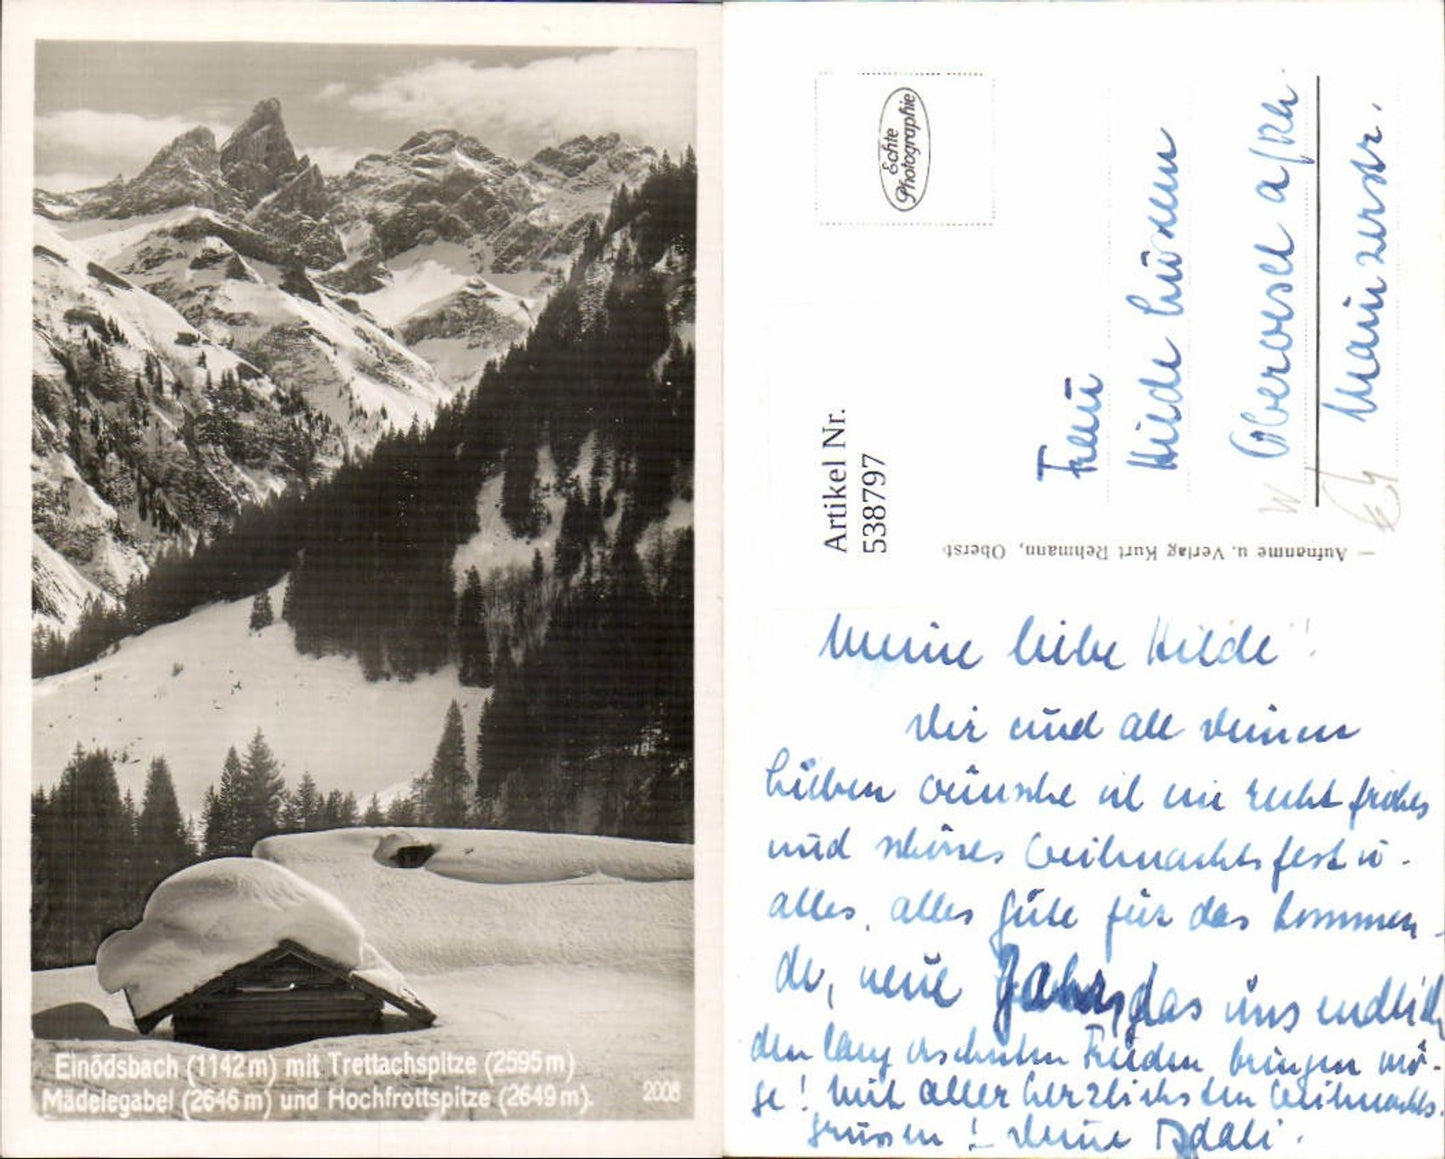 Einödsbach (1142m) mit Trettachspitze (2595m)
Mädelegabel (2646m) und Hochfrottspitze (2649m).
2008
Echte
Photographie
Artikel Nr.
538797
Frau
Hilde
Oberwesel a/Rh.
Mainzerstr.
— Aufnahme u. Verlag Kurt Rehmann, Oberst
Meine liebe Hilde!
Dir und all Deinen
Lieben wünsche ich ein recht frohes
und schönes Weihnachtsfest u.
alles, alles Gute für das kommen-
de, neue Jahr, das uns endlich
den lang ersehnten Frieden bringen mö-
ge! Mit aller herzlichsten Weihnachts-
grüssen! Deine